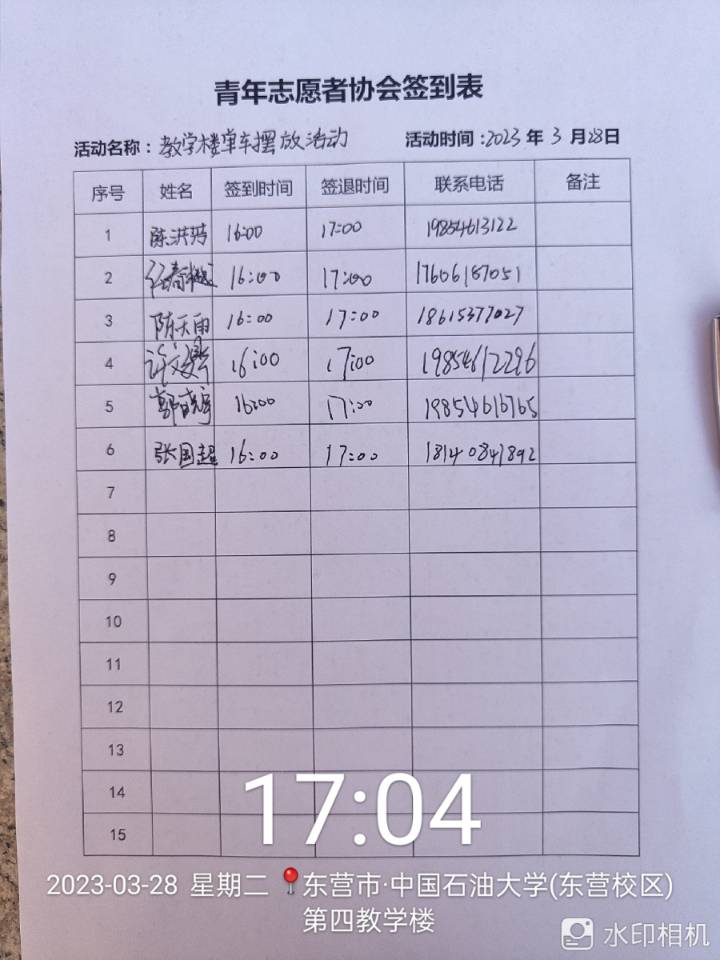 青年志愿者协会签到表
活动名称：教学楼单车摆放活动 活动时间:2023 年 3 月28日
序号 姓名 签到时间 签退时间 联系电话 备注
1 陈洪 16:00 17:00 19854613122
2 16:00 17:00 17606187051
3 陈天雨 16:00 17:00 18615377027
4 许文 16:00 17:00 19854612296
5 郭 16:00 17:00 19854616765
6 张国超 16:00 17:00 18140841892
7
8
9
10
11
12
13
14
15
17:04
2023-03-28 星期二 东营市·中国石油大学(东营校区)
第四教学楼
水印相机